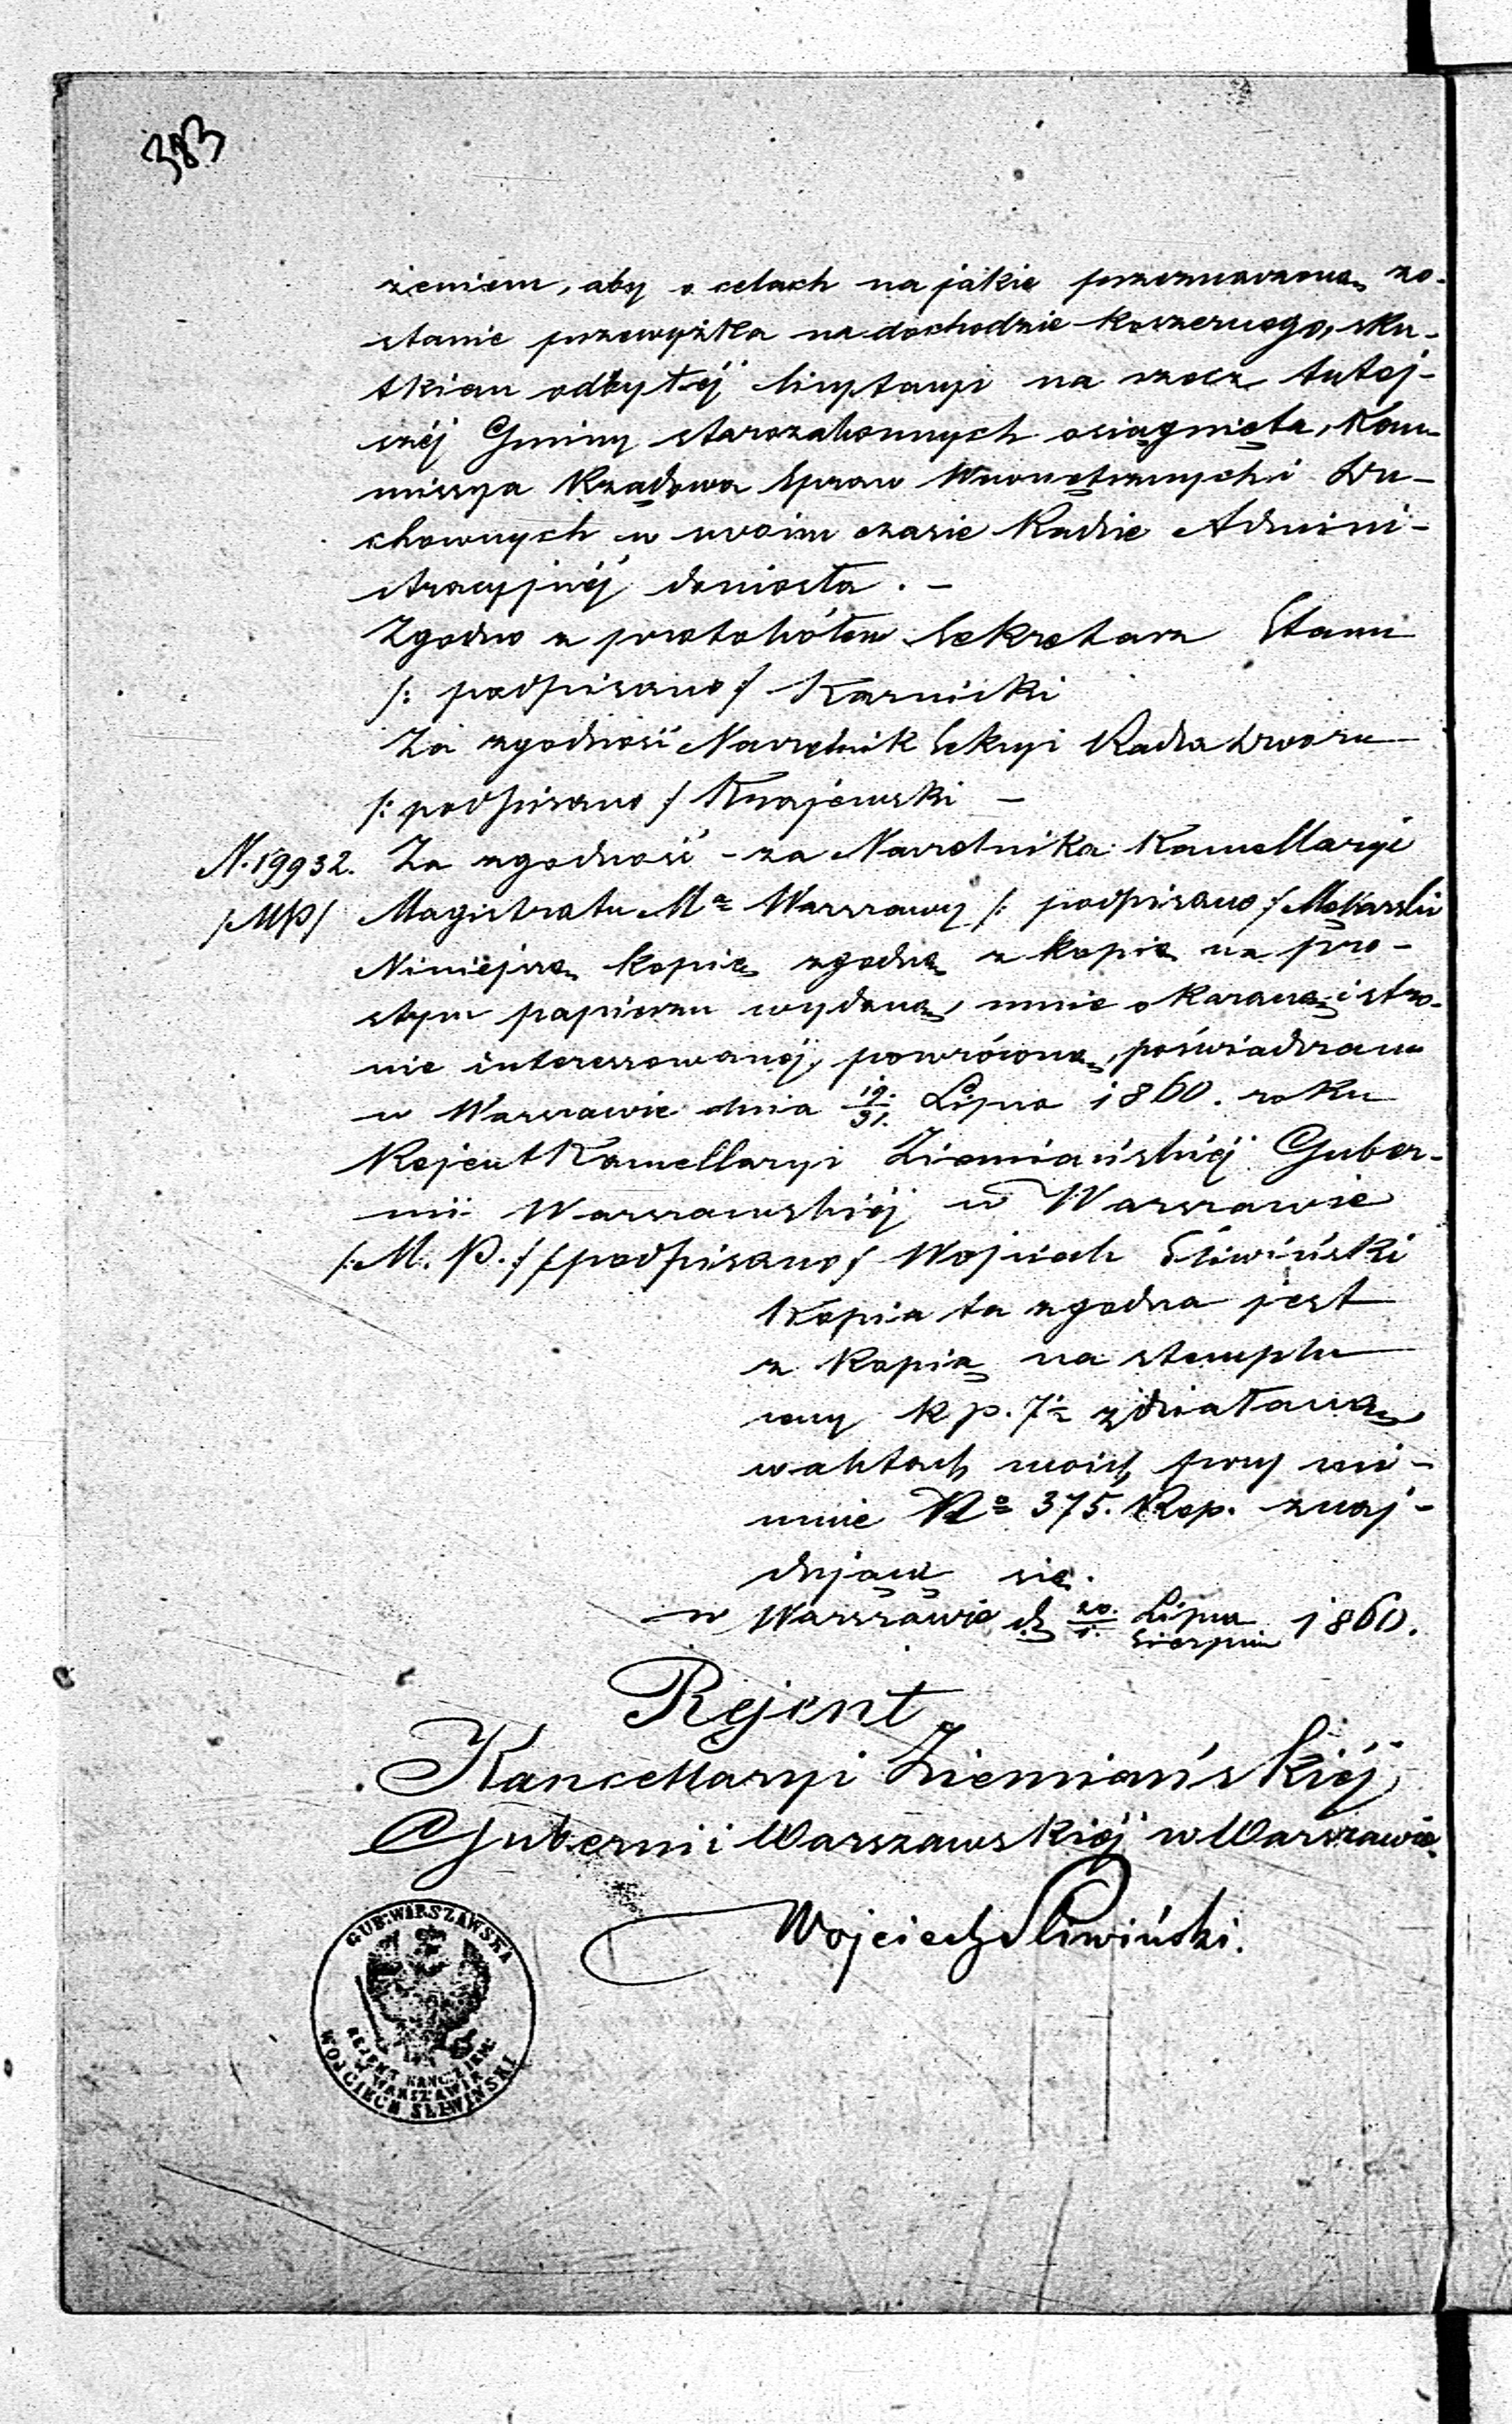 383
żeniem, aby o celach na jakie przeznaczoną zo-
stanie przewyżka na dochodzie koszernego, sku-
tkiem odbytéj licytacyi na rzecz tutej-
széj Gminy starozakonnych osiągnięta, Kom-
missya Rządowa Spraw Wewnętrznych i Du-
chownych w swoim czasie Radzie Admini-
stracyjnéj doniosła. —
Zgodno z protokółem Sekretarz Stanu
/: podpisano :/ Karnicki
Za zgodność Naczelnik Sekcyi Radca Dworu
/: podpisano :/ Krajewski —
N. 19932. Za zgodność – za Naczelnika Kancellaryi
/MP/ Magistratu Mª Warszawy /: podpisano :/ Mękarski
Niniejszą kopię zgodną z kopią na pro-
stym papierze wydaną, mnie okazaną i stro-
nie interessowanéj, powróconą, poświadczam
w Warszawie dnia 19/31. Lipca 1860. roku
Rejent Kancellaryi Ziemiańskiéj Guber-
nii Warszawskiéj w Warszawie
/: M. P. :/ /podpisano/ Wojciech Śliwiński
Kopia ta zgodna jest
z kopią na stemplu
ceny k p. 7½ zdziałaną
w aktach moich przy nu-
mrze No 375. Rep. znaj-
dującą się.
w Warszawie d. 20./1. Lipca/Sierpnia 1860.
Rejent
Kancellaryi Ziemiańskiéj
Gubernii Warszawskiéj w Warszawie.
Wojciech Śliwiński.
GUB: WARSZAWSKA
REJENT KANC: ZIEM:
W WARSZAWIE
WOJCIECH ŚLIWIŃSKI